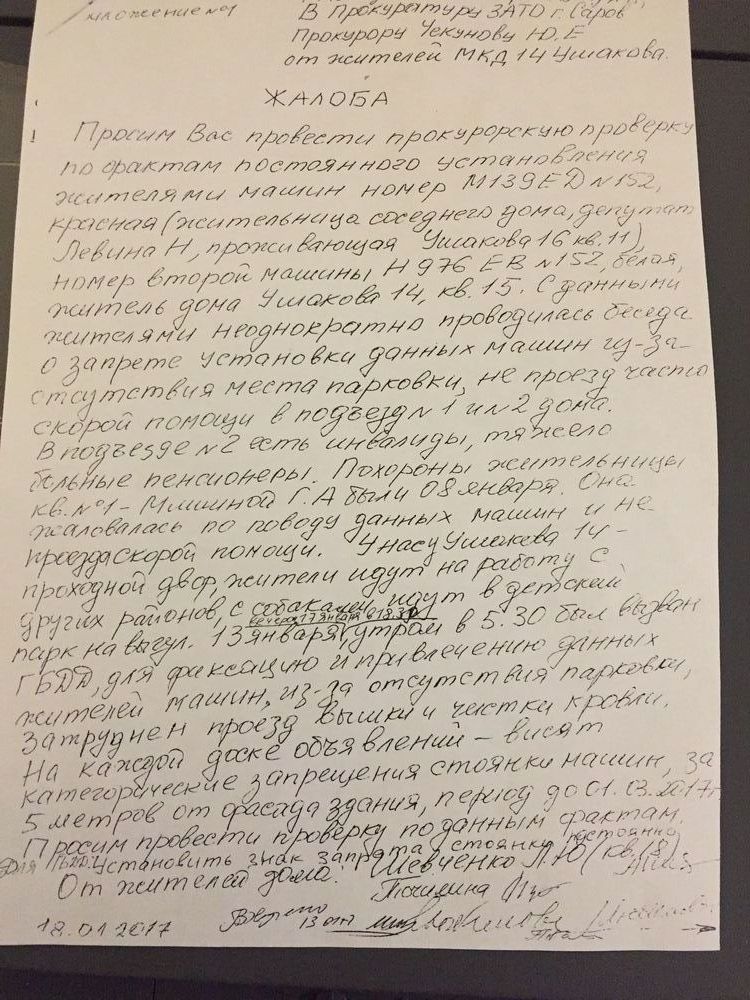 В Прокуратуру ЗАТО г. Саров
Прокурору Чекунову Ю.Е
от жителей МКД 14 Ушакова.
ЖАЛОБА
Просим Вас провести прокурорскую проверку
по фактам постоянного установления
жителями машин номер М139ЕД N152,
красная (жительница соседнего дома, депутат
Левина Н, проживающая Ушакова 16 кв. 11),
номер второй машины Н 976 ЕВ N152, белая,
житель дома Ушакова 14, кв. 15. С данными
жителями неоднократно проводилась беседа
о запрете установки данных машин из-за
отсутствия места парковки, не проезд часто
скорой помощи в подъезд N1 и N2 дома.
В подъезде N2 есть инвалиды, тяжело
больные пенсионеры. Похороны жительницы
кв. N°1 - Г. А были 08 января. Она
жаловалась по поводу данных машин и не
проезда скорой помощи. У нас у Ушакова 14 -
проходной двор, жители идут на работу с
других районов, с собаками идут в детский
вечера 17 января в 18.30
парк на выгул. 13 января, утром в 5.30 был вызван
ГБДД, для фиксацию и привлечению данных
жителей машин, из-за отсутствия парковки,
затруднен проезд вышки и чистки кровли.
На каждой доске объявлений - висят
категорические запрещения стоянки машин, за
5 метров от фасада здания, период до 01.03.2017г
Просим провести проверку по данным фактам.
Установить знак запрета стоянки постоянно
От жителей дома: Шевченко Л.Ю (кв. 18)
18.01 2017